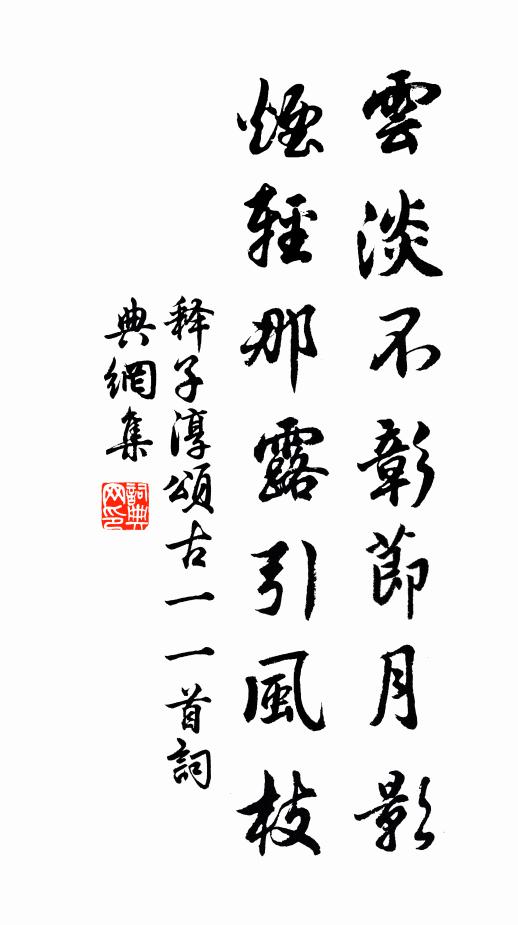 雲淡不彰節月影
煙輕那露引風枝
释子淳頌古一一首詞
典網集
詞典
网印